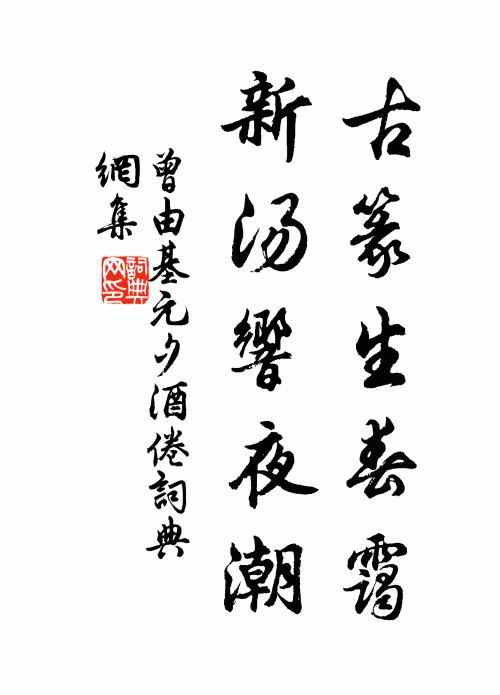 古篆生春靄
新湯響夜潮
曾由基元夕酒倦詞典
網集
詞典網印